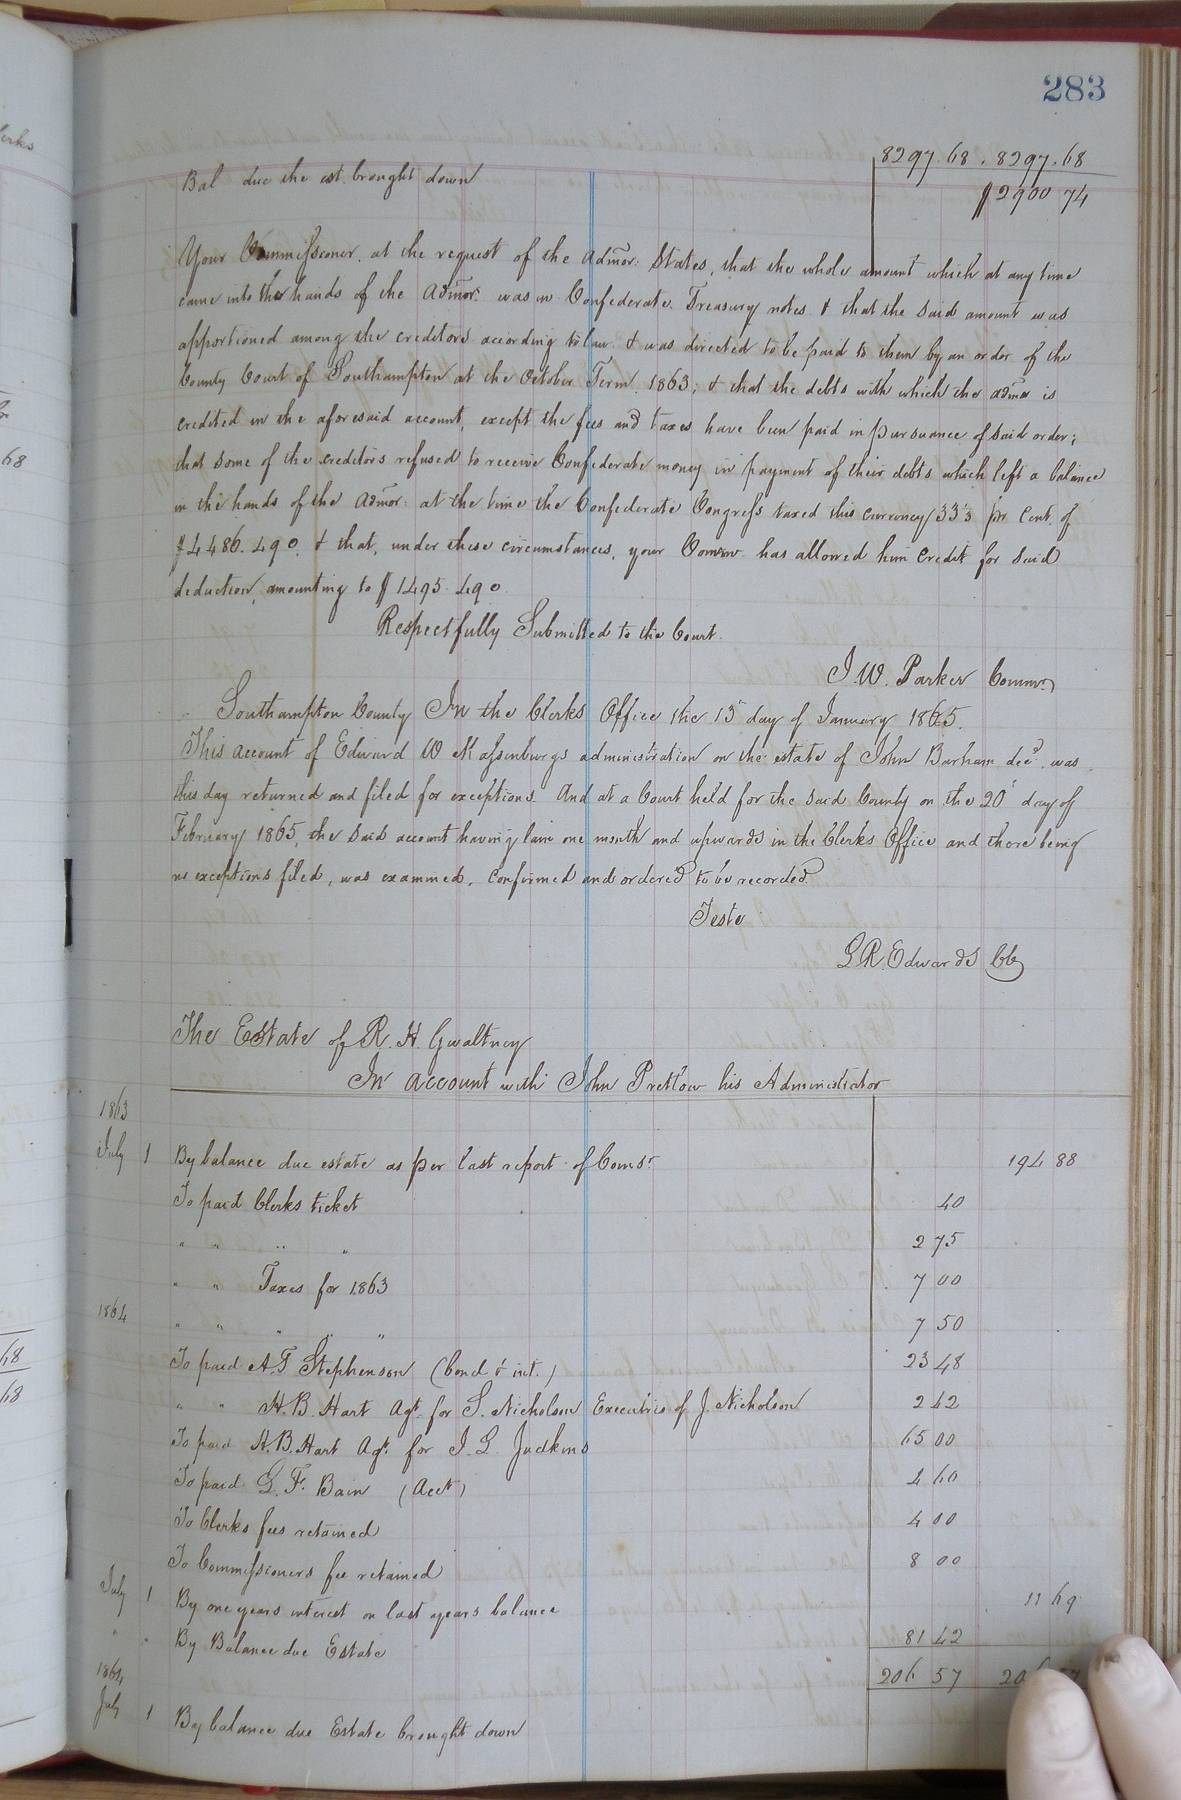 283
8297.68 . 8297.68
Bal due the est. brought down $2900 74
Your Commissioner, at the request of the Admor: States, that the whole amount which at any time
came into the hands of the Admor: was in Confederate Treasury notes & that the said amount was
apportioned among the creditors according to law & was directed to be paid to them by an order of the
County Court of Southampton at the October Term 1863; & that the debts with which the admor is
credited in the aforesaid account, except the fees and taxes have been paid in pursuance of said order;
that some of the creditors refused to receive Confederate money in payment of their debts which left a balance
in the hands of the Admor: at the time the Confederate Congress taxed this currency 33⅓ pr Cent. of
$4486.490. & that, under these circumstances, your Commr. has allowed him Credit for said
deduction, amounting to $1495.490
Respectfully Submitted to the Court.
J. W. Parker Commr.
Southampton County In the Clerks Office the 13 day of January 1865.
This account of Edward W Massenburgs administration on the estate of John Barham decd. was
this day returned and filed for exceptions. And at a Court held for the said County on the 20 day of
February 1865, the said account having lain one month and upwards in the Clerks Office and there being
no exceptions filed, was examined, confirmed and ordered to be recorded.
Teste
L. R. Edwards CC
The Estate of R. H. Gwaltney
In account with John Pretlow his Administrator
1863
July 1 By balance due estate as per last report of Comsr. 194 88
To paid Clerks ticket 40
" " " " 2 75
" " Taxes for 1863 7 00
1864 " " " " " 7 50
To paid A. T. Stephenson (bond & int.) 23 48
" " H. B. Hart Agt. for S. Nicholson Executrix of J. Nicholson 2 42
To paid H. B. Hart Agt. for J. G. Judkins 65 00
To paid G. F. Bain (Acct) 4 60
To Clerks fees retained 4 00
To Commissioners fee retained 8 00
July 1 By one years interest on last years balance 11 69
" " By Balance due Estate 81 42
206 57 206 57
1864
July 1 By balance due Estate brought down